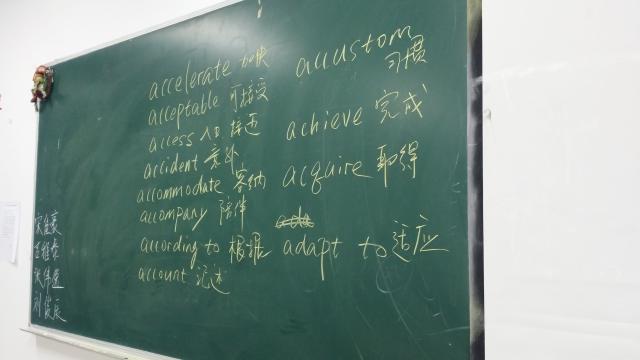 accelerate 加快
acceptable 可接受
access 入口 接近
accident 意外
accommodate 容纳
accompany 陪伴
according to 根据
account 记述
accustom
习惯
achieve 完成
acquire 取得
adapt to 适应